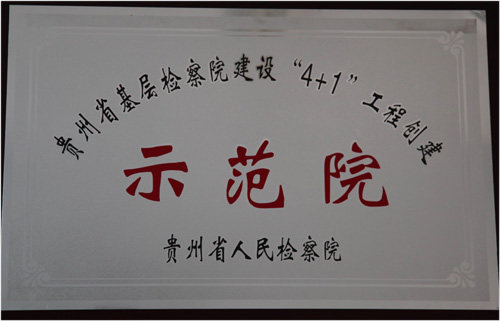 贵州省基层检察院建设“4+1”工程创建
示范院
贵州省人民检察院